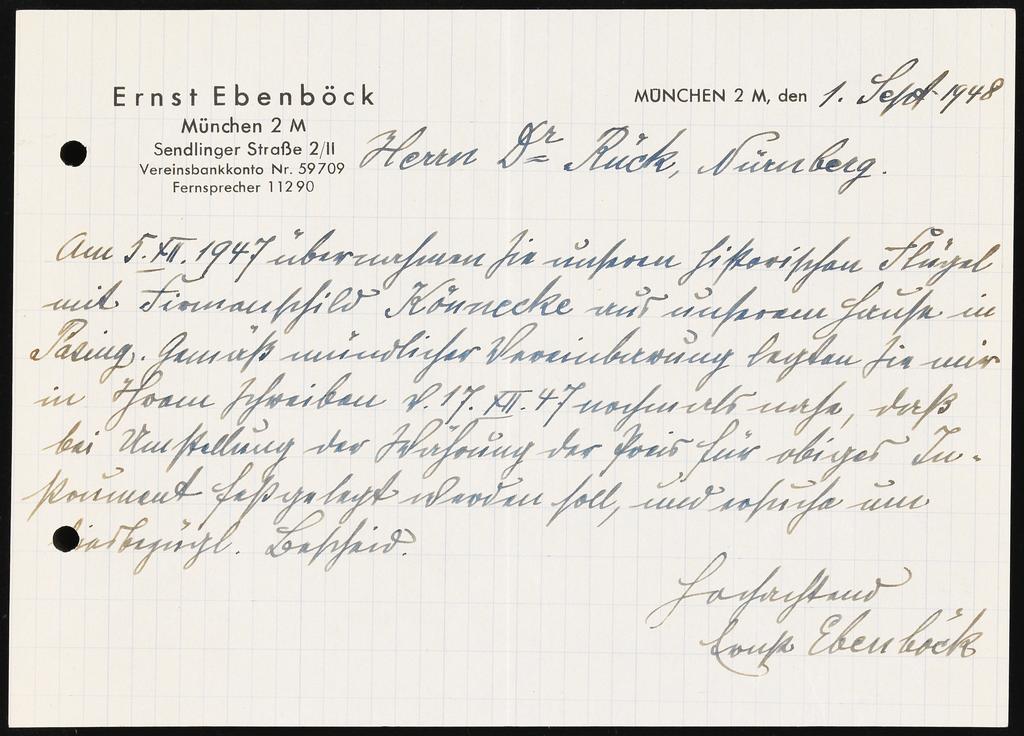 Ernst Ebenböck
München 2 M
Sendlinger Straße 2/II
Vereinsbankkonto Nr. 59709
Fernsprecher 11290
MÜNCHEN 2 M, den 1. Sept. 1948
Herrn Dr Rück, Nürnberg.
Am 5.XII.1947 übernahmen Sie unseren historischen Flügel
mit Firmenschild Könnecke aus unserem Hause in
Pasing. Gemäß mündlicher Vereinbarung legten Sie mir
in Ihrem Schreiben v. 17. XII. 47 nochmals nahe, daß
bei Umstellung der Währung der Preis für obiges In-
strument festgelegt werden soll, und ersuche um
diesbezügl. Bescheid.
Hochachtend
Ernst Ebenböck